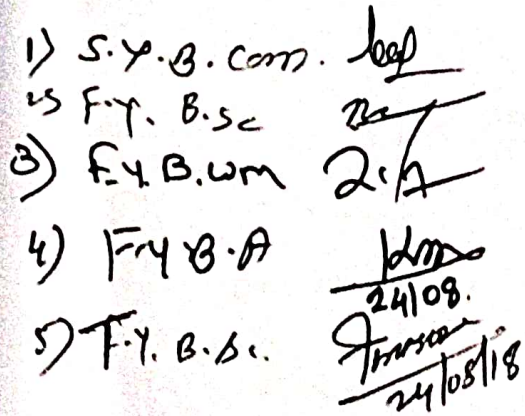 1) S.Y.B.Com.
2) F.Y. B.Sc
3) F.Y.B.Com
4) F.Y B.A
24/08.
5) T.Y. B.Sc.
24/08/18